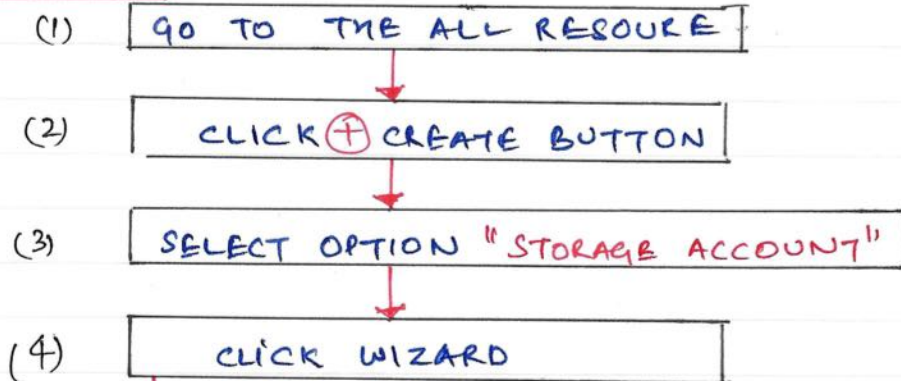 (1) GO TO THE ALL RESOURE
(2) CLICK + CREATE BUTTON
(3) SELECT OPTION "STORAGE ACCOUNT"
(4) CLICK WIZARD